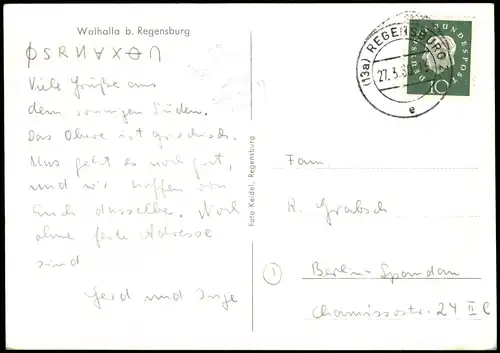 Walhalla b. Regensburg
Viele Grüße aus
dem sonnigen Süden.
Das Obere ist griechisch.
Uns geht es noch gut,
und wir hoffen von
Euch dasselbe. Noch
ohne feste Adresse
sind
Gerd und Inge
Foto Keidel, Regensburg
(13a) REGENSBURG
27.3.60
e
DEUTSCHE BUNDESPOST
10
Fam.
R. Grabsch
1 Berlin-Spandau
Chamissostr. 24 II C